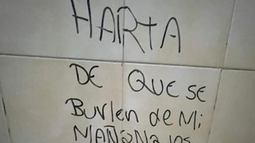 HARTA
DE QUE SE
Burlen de Mi
MAÑANA los